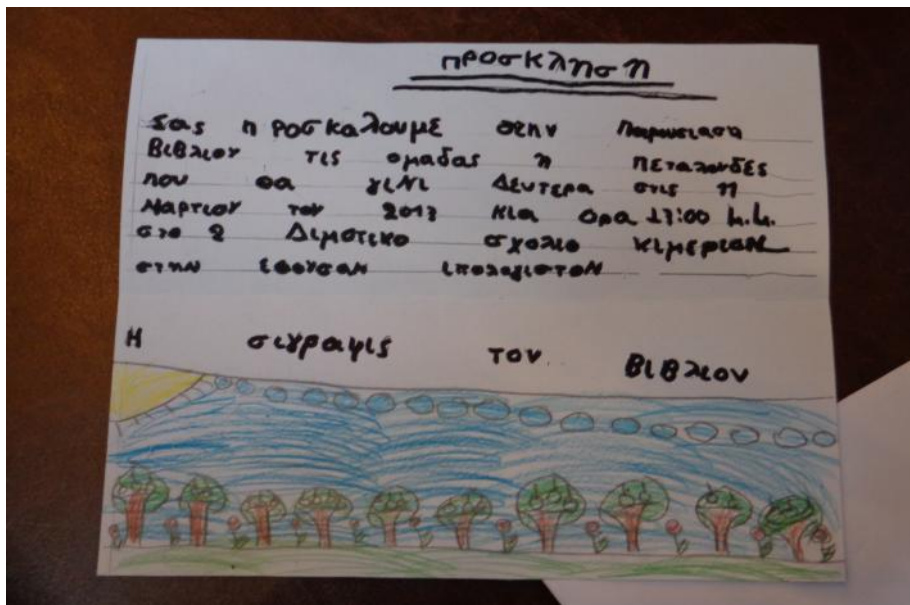 προσκληση
Σας προσκαλουμε στην παρουσιαση
Βιβλιου τις ομαδας η πεταλουδες
που θα γινι Δευτερα στις 11
Μαρτιου του 2013 κια ορα 17:00 μ.μ.
στο 2 Διμοτικο σχολιο κιμεριον
στην εθουσαν ιπολογιστον
Η σιγραψις του Βιβλιου